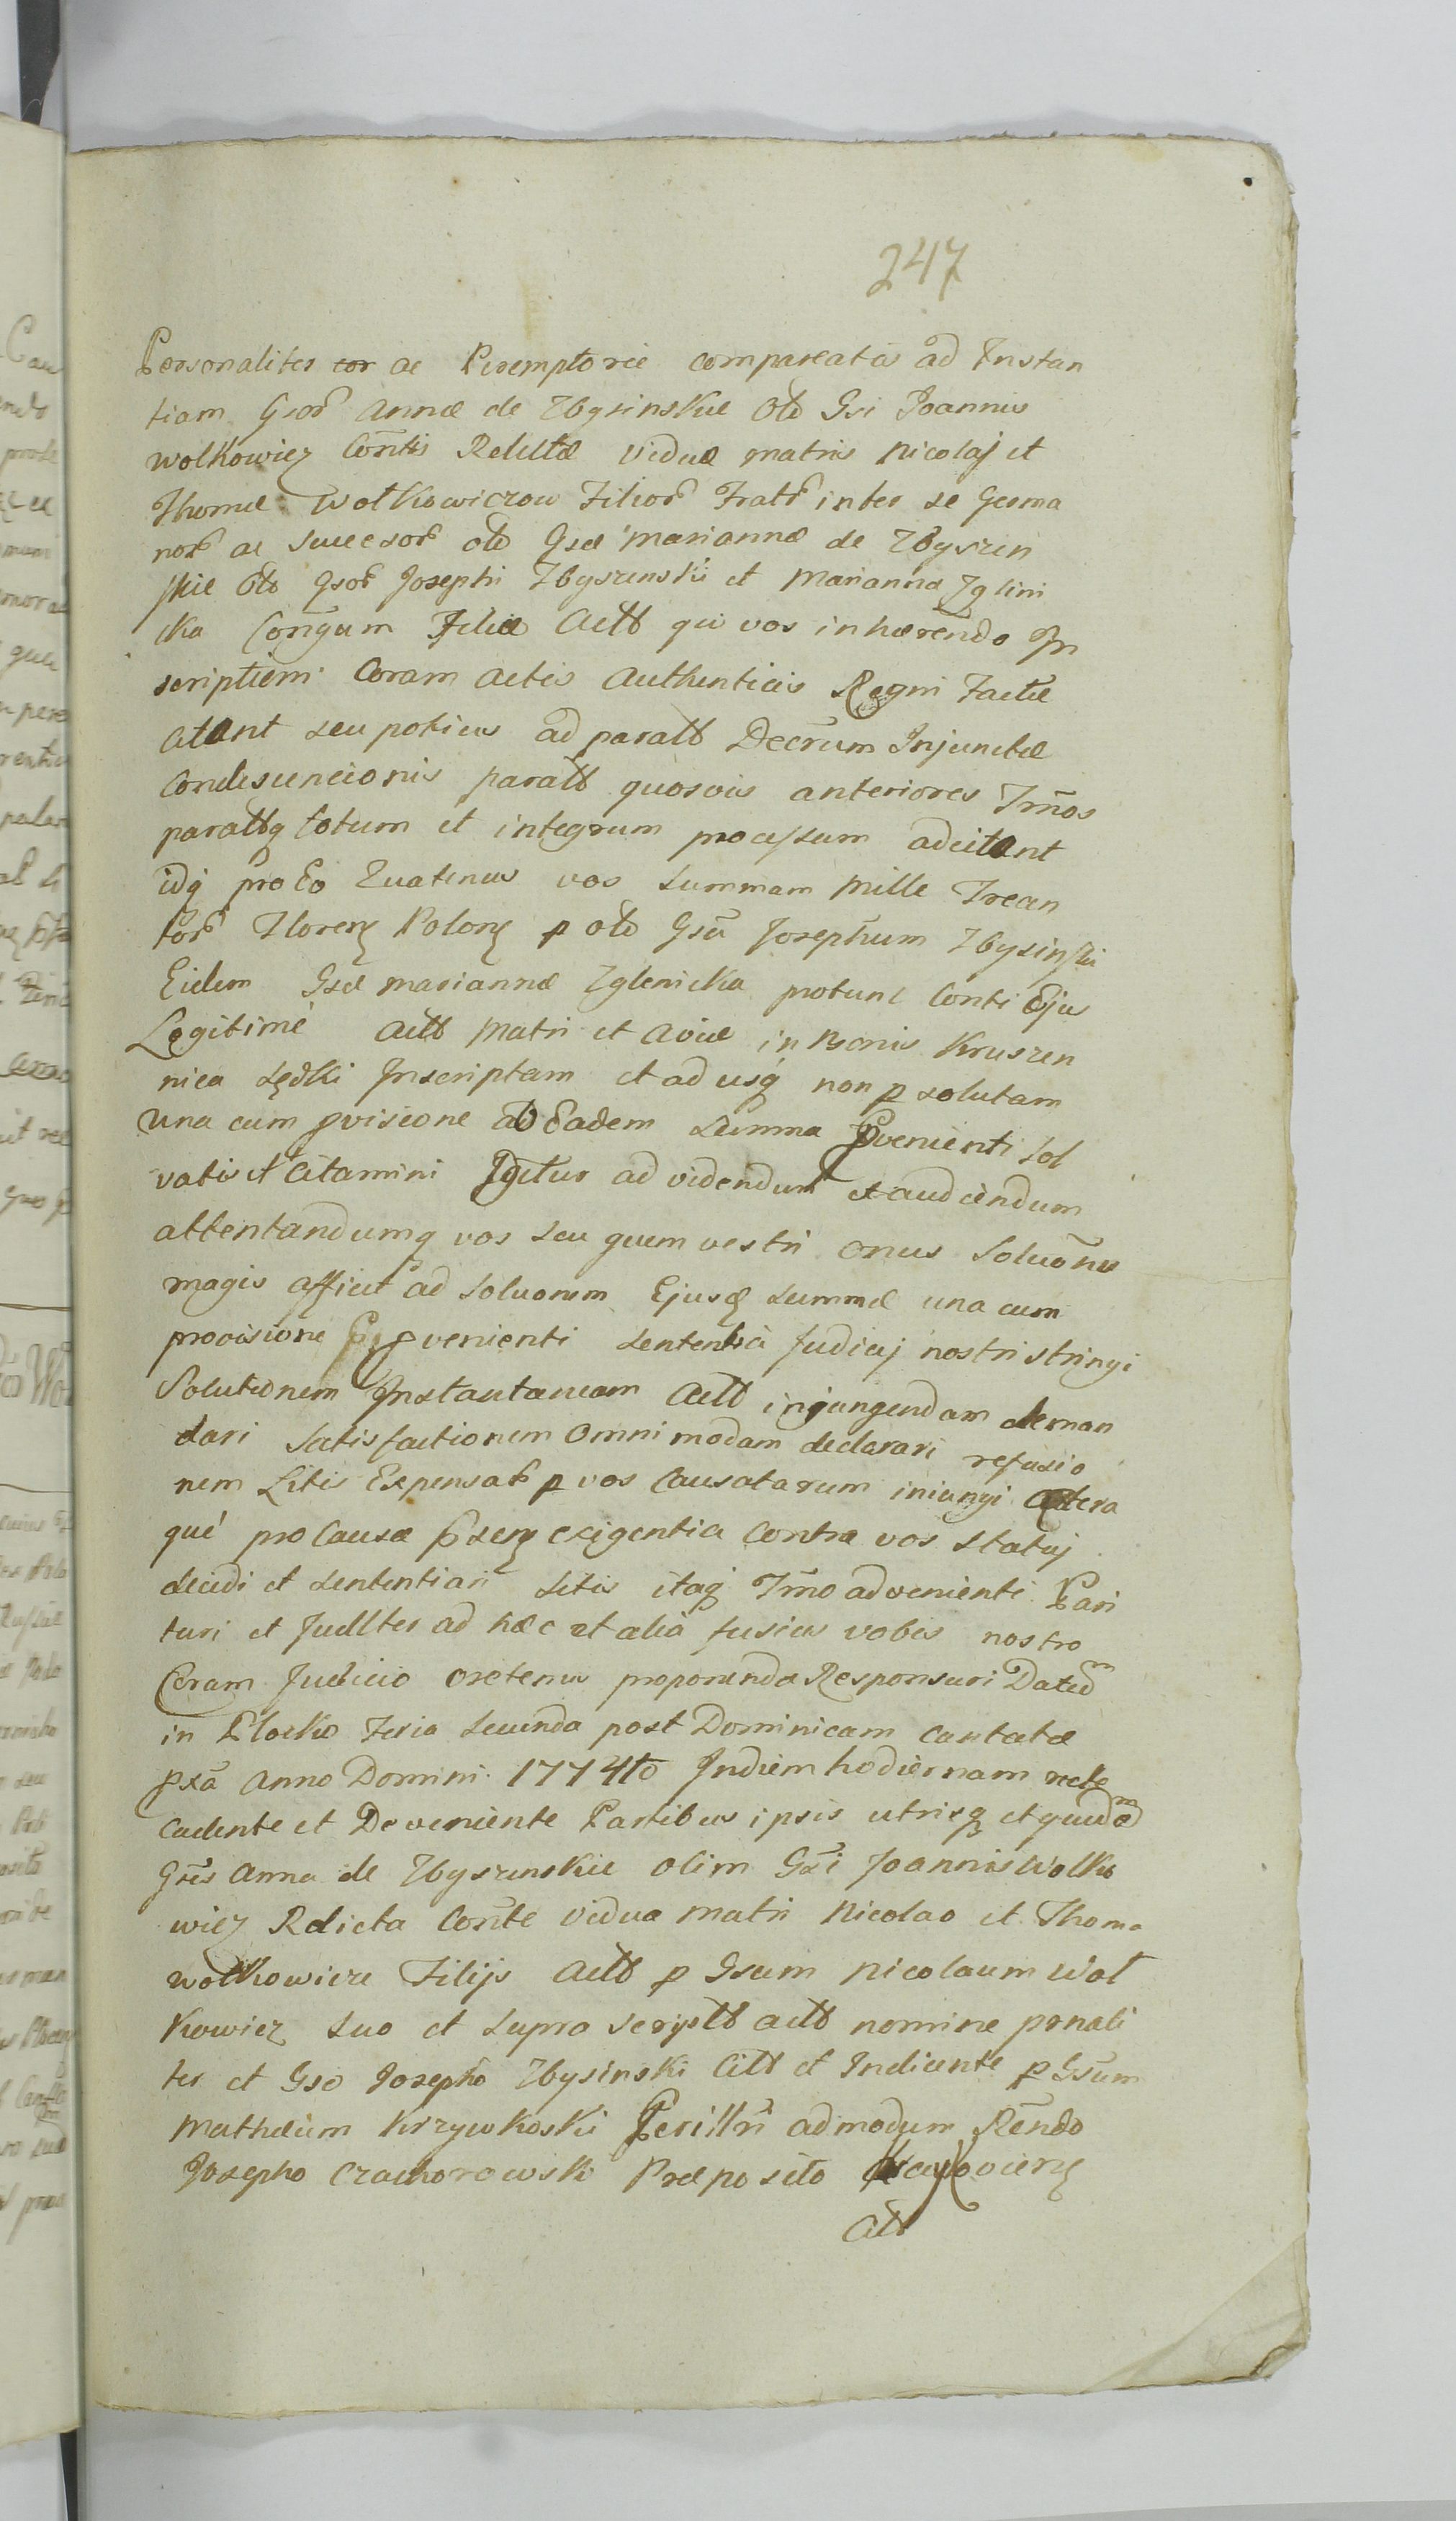 247
Personaliter ac Peremptorie compareatis ad Instan
tiam Gsor Annæ de Zbysinskie Olð Gsi Joannis
wolkowicz Cõntis Relictæ viduæ matris Nicolaj et
Thomæ Wołkowiczow Filior Fratr inter se Germa
nor ac Succesor olð Gsæ Mariannæ de Zbyszen
skie Olð Gsor Josephi Zbyszenski et Marianna Zglini
cka Coñgum Filiæ Actt qui vos inhærendo In
scriptioni Coram Actis Authenticis Regni Factæ
citant seu potius ad paratt Decrum Injunctæ
Condescencionis paratt quosvis anteriores Tm̃nos
parattq totum et integrum processum adcitant
idq pro Eo Quatenus vos summam Mille Trecen
tor Floreñ Poloñ p olð Gsũ Josephum Zbysinski
Eidem Gsæ Mariannæ Zglenicka protunc Conti Ejus
Legitimé Actt Matri et Aviæ in Bonis Kruszen
nica Lędki Inscriptam et ad usq non p solutam
una cum pvisione ab Eadem Summa Pvenienti sol
vatis et Citamini Igitur ad videndum et audiendum
attentandumq vos seu quem vestri onus Soluõnis
magis afficit ad Soluonem Ejusd Summæ una cum
provisione pvenienti sententia Judicij nostri stringi
Solutionem Instantaneam Actt injungendam deman
dari Satisfactionem Omnimodam declarari refusio
nem Litis Expensar p vos Causatarum iniungi Cætera
qué pro Causæ pseñ exigentia Contra vos statuj
decidi et sententiari Sitis itaq Tm̃o advenienti Pari
turi et Judllter ad hæc et alia fusius vobis nostro
Coram Judicio oretenus proponenda Responsuri Datũ
in Plocko Feria Secunda post Dominicam Cantatæ
pxã Anno Domini 1774to Indiem hodiernam recte
Cadente et Deveniente Partibus ipsis utrisq et quidem
Gsis Anna de Zbyszenskie olim Gsi Joannis Wolko
wicz Relicta Cõnte Vidua Matri Nicolao et Thoma
wołkowicze Filijs Actt p Gsum Nicolaum Woł
kowicz Suo et Supra Scriptt actt nomine psnali
ter et Gso Josepho Zbysinski Citt et Indicente p Gsum
Mathæum Krzywkoski Perillri admodum Rendo
Josepho Czachorowski Præposito
Citt